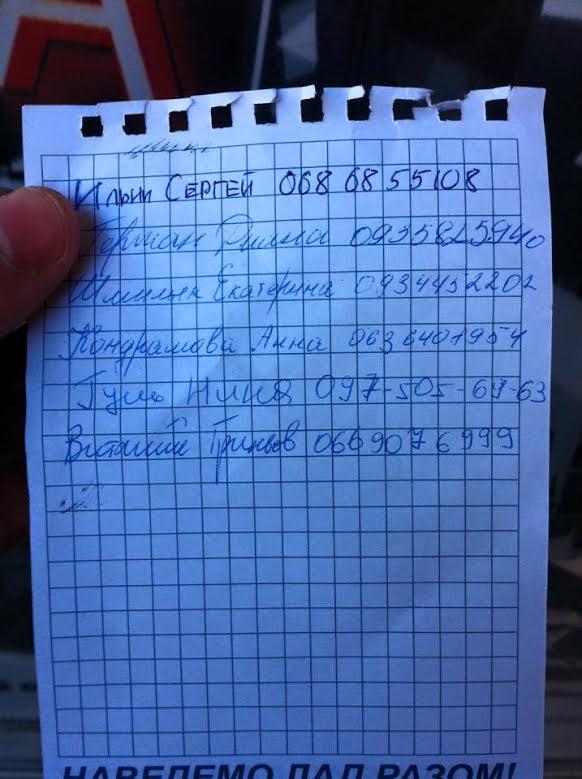 Ильин Сергей 068 68 55108
Герман 0935825940
Екатерина 0934452202
Кондрамова Анна 063 6401954
Гуль 097-505-69-63
Виталий Гриньов 066 907 6 999
НАВЕДЕМО ЛАД РАЗОМ!